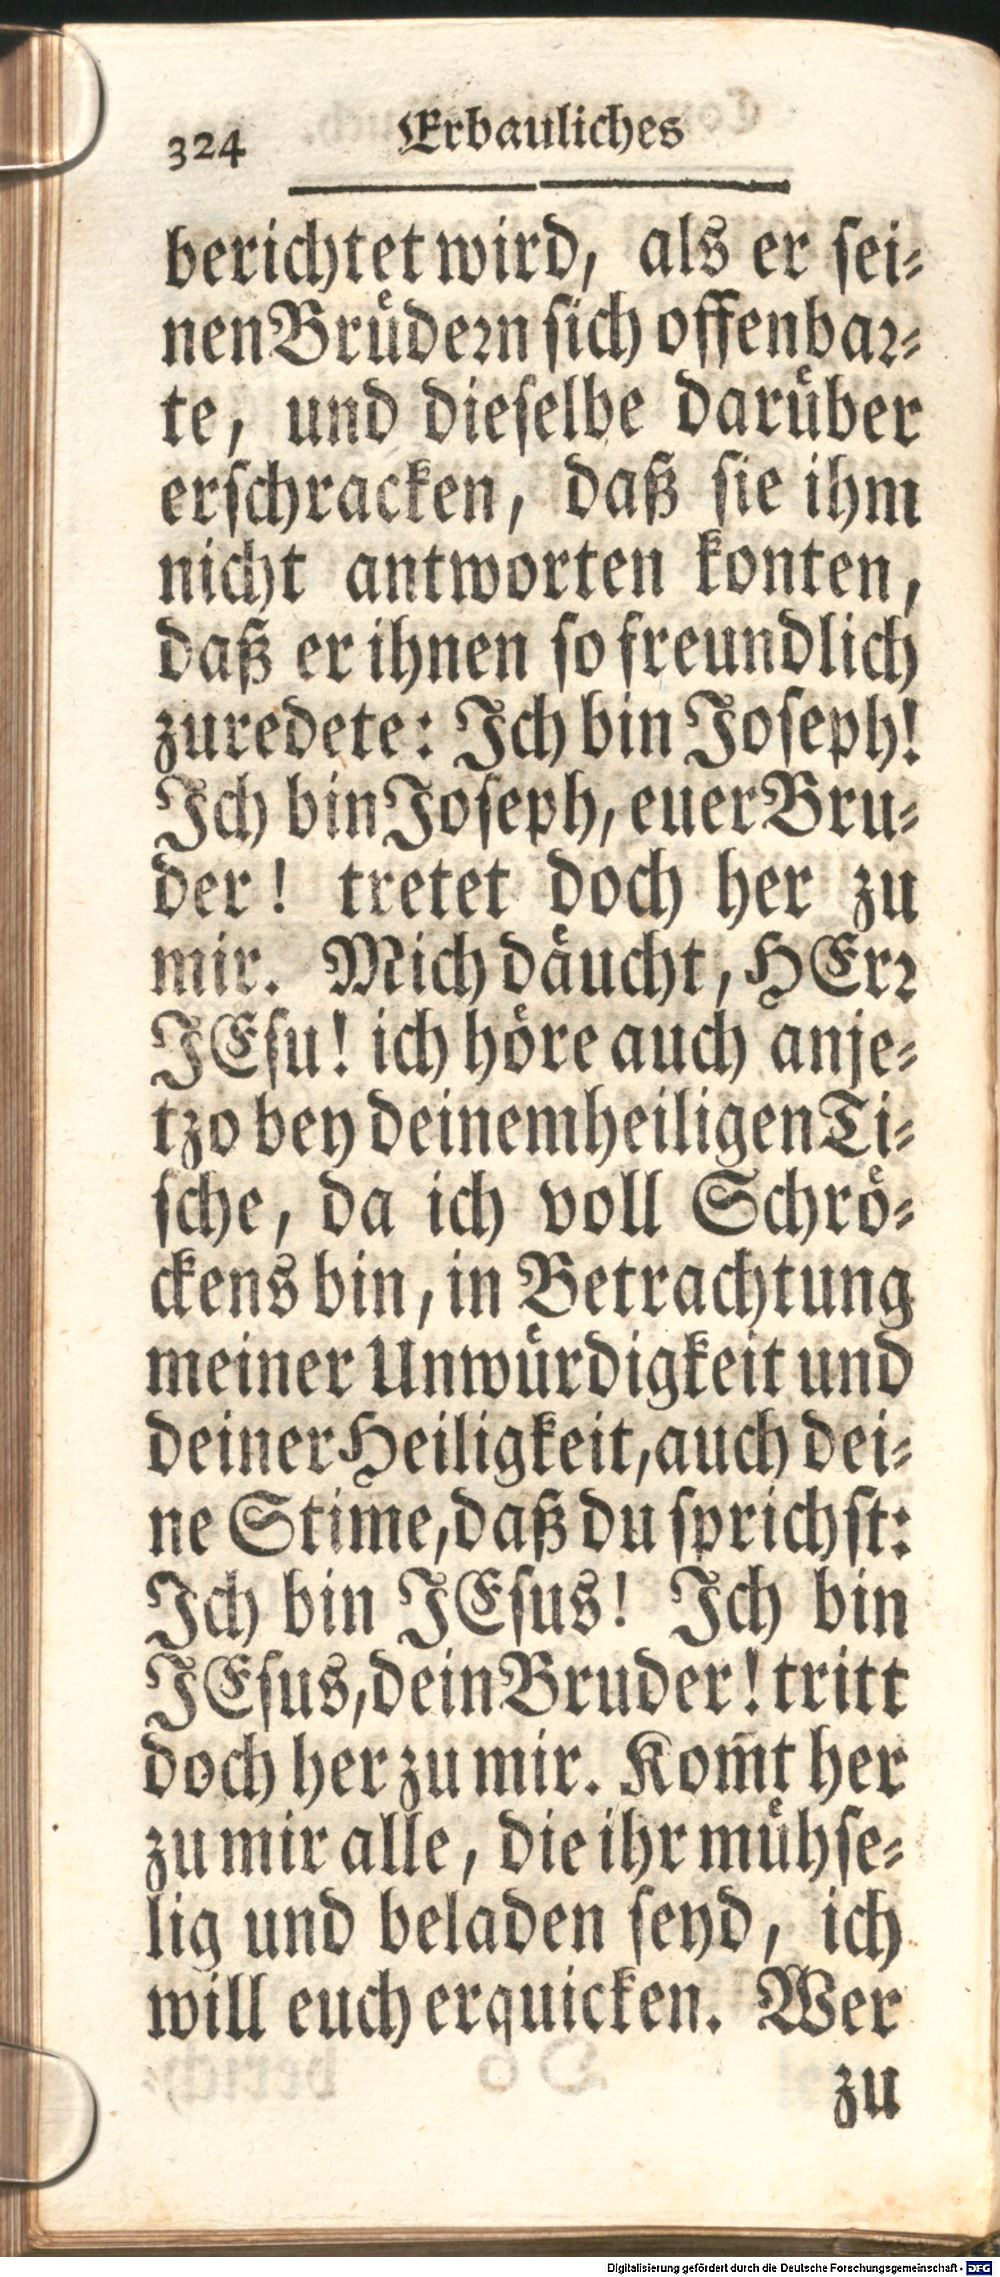 324 Erbauliches
berichtet wird, als er sei⸗
nen Bruͤdeꝛn sich offenbaꝛ⸗
te, und dieselbe daruͤber
erschracken, daß sie ihm
nicht antworten konten,
daß er ihnen so freundlich
zuredete: Ich bin Joseph!
Ich bin Joseph, euer Bru⸗
der! tretet doch her zu
mir. Mich daͤucht, HErꝛ
JEsu! ich hoͤre auch anje⸗
tzo bey deinem heiligen Ti⸗
sche, da ich voll Schroͤ⸗
ckens bin, in Betrachtung
meiner Unwuͤrdigkeit und
deiner Heiligkeit, auch dei⸗
ne Stim̃e, daß du sprichst:
Ich bin JEsus! Ich bin
JEsus, dein Bruder! tritt
doch her zu mir. Kom̃t her
zu mir alle, die ihr muͤhse⸗
lig und beladen seyd, ich
will euch erquicken. Wer
zu
Digitalisierung gefördert durch die Deutsche Forschungsgemeinschaft - DFG